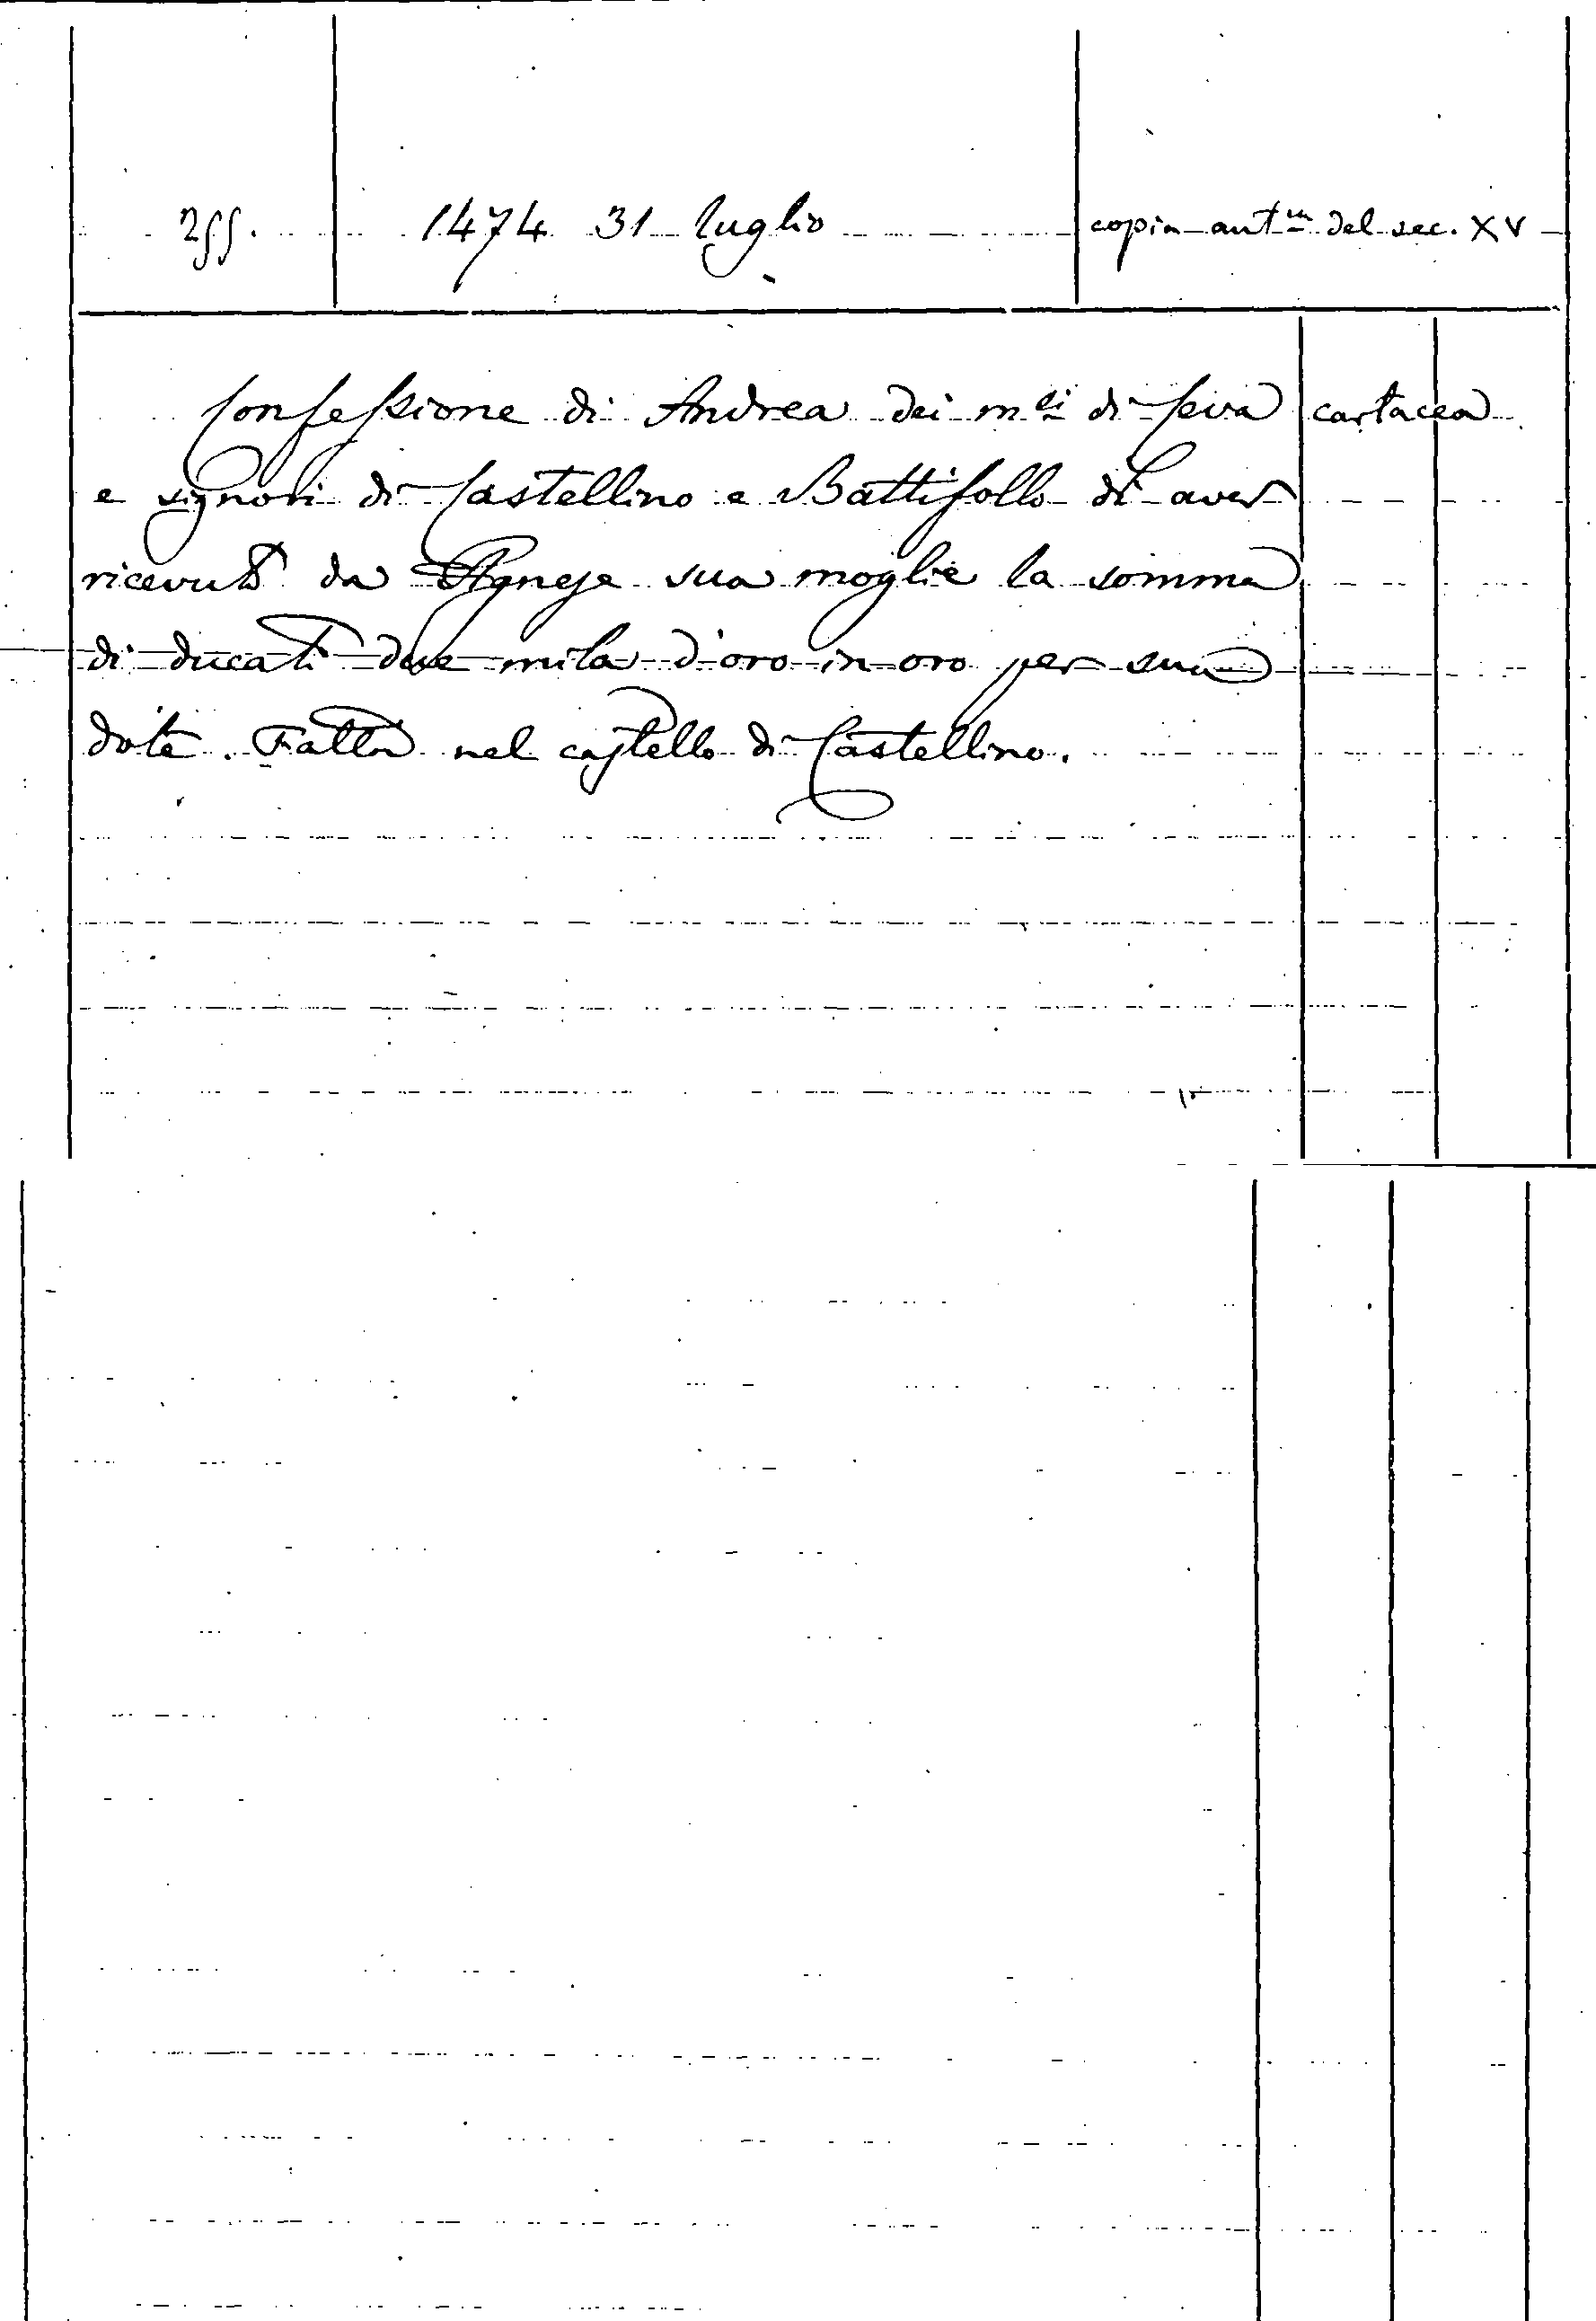 255. 1474 31 luglio copia aut.ca del sec. XV
Confessione di Andrea dei m.si di Ceva cartacea
e signori di Castellino e Battifollo di aver
ricevuto da Agnese sua moglie la somma
di ducati due mila d'oro in oro per sua
dote. Fatta nel castello di Castellino.